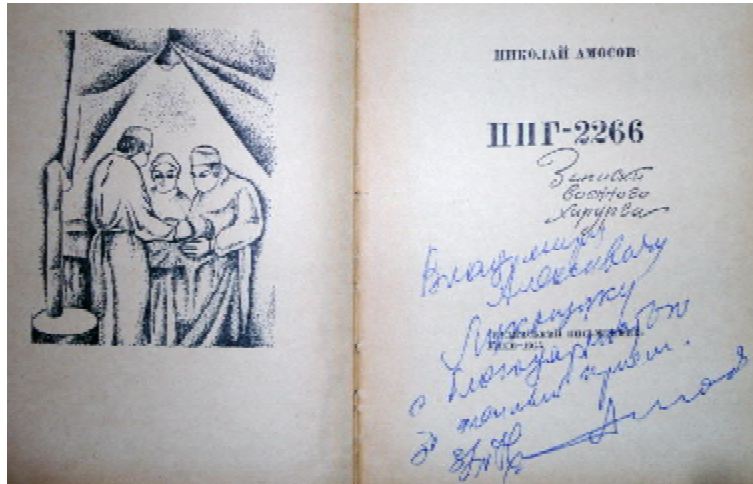 НИКОЛАЙ АМОСОВ
ППГ-2266
Записки
военного
хирурга
Владимиру
Алексеевичу
с благодарностью
за теплый прием.
Амосов